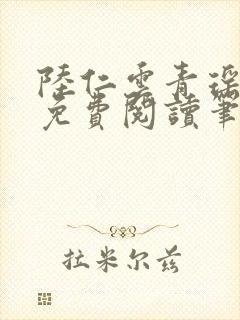 陸仁雲青瑶
免費閱讀筆
拉米尔兹